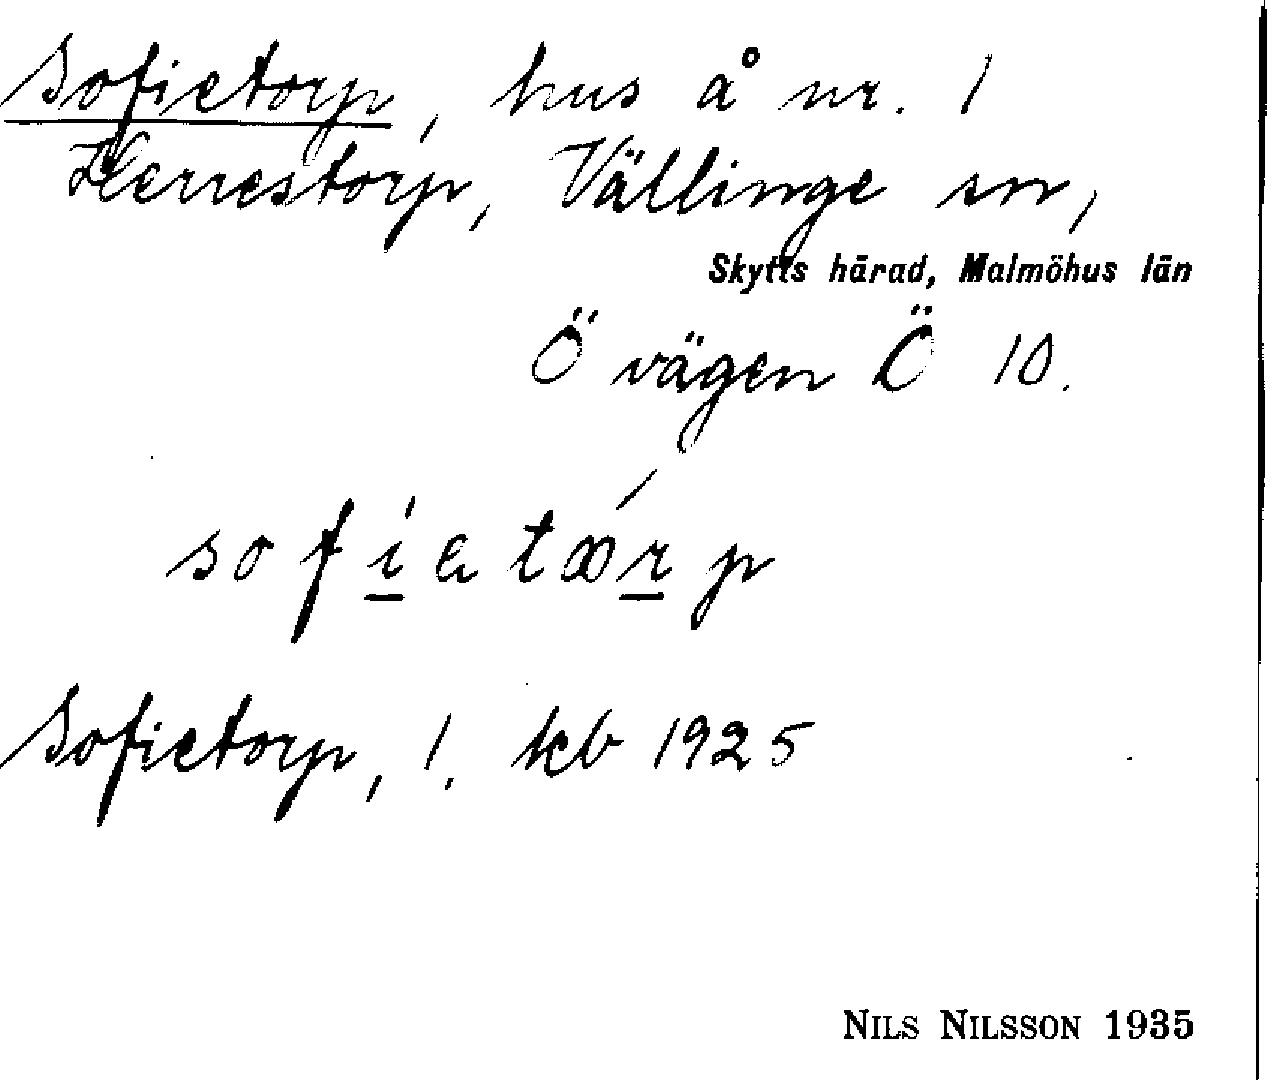 Sofietorp, hus å nr. 1
Herrestorp, Vällinge sn,
Skytts härad, Malmöhus län
Ö vägen Ö 10.
sofietærp
Sofietorp, 1. kb 1925
NILS NILSSON 1935